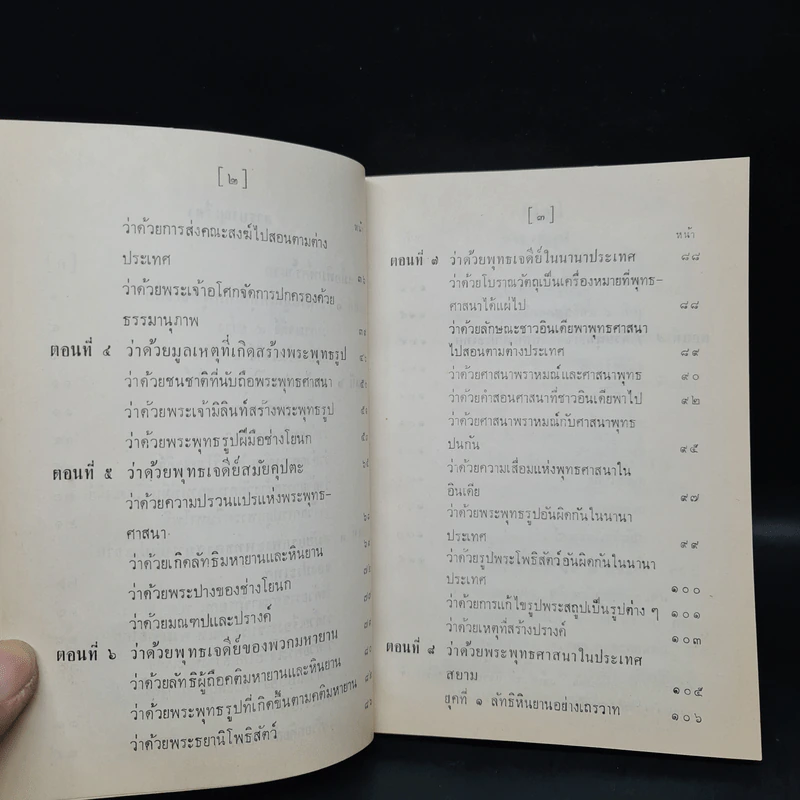 [ ๒ ]
หน้า
ว่าด้วยการส่งคณะสงฆ์ไปสอนตามต่าง
ประเทศ
ว่าด้วยพระเจ้าอโศกจัดการปกครองด้วย
ธรรมานุภาพ
ตอนที่ ๔ ว่าด้วยมูลเหตุที่เกิดสร้างพระพุทธรูป
ว่าด้วยชนชาติที่นับถือพระพุทธศาสนา
ว่าด้วยพระเจ้ามิลินท์สร้างพระพุทธรูป
ว่าด้วยพระพุทธรูปฝีมือช่างโยนก
ตอนที่ ๕ ว่าด้วยพุทธเจดีย์สมัยคุปตะ
ว่าด้วยความปรวนแปรแห่งพระพุทธ-
ศาสนา
ว่าด้วยเกิดลัทธิมหายานและหินยาน
ว่าด้วยพระปางของช่างโยนก
ว่าด้วยมณฑปและปรางค์
ตอนที่ ๖ ว่าด้วยพุทธเจดีย์ของพวกมหายาน
ว่าด้วยลัทธิผู้ถือคติมหายานและหินยาน
ว่าด้วยพระพุทธรูปที่เกิดขึ้นตามคติมหายาน
ว่าด้วยพระธยานิโพธิสัตว์
[ ๓ ]
หน้า
ตอนที่ ๗ ว่าด้วยพุทธเจดีย์ในนานาประเทศ ๘๘
ว่าด้วยโบราณวัตถุเป็นเครื่องหมายที่พุทธ-
ศาสนาได้แผ่ไป ๘๘
ว่าด้วยลักษณะชาวอินเดียพาพุทธศาสนา
ไปสอนตามต่างประเทศ ๘๙
ว่าด้วยศาสนาพราหมณ์และศาสนาพุทธ ๙๐
ว่าด้วยคำสอนศาสนาที่ชาวอินเดียพาไป ๙๒
ว่าด้วยศาสนาพราหมณ์กับศาสนาพุทธ
ปนกัน ๙๕
ว่าด้วยความเสื่อมแห่งพุทธศาสนาใน
อินเดีย ๙๗
ว่าด้วยพระพุทธรูปอันผิดกันในนานา
ประเทศ ๙๙
ว่าด้วยรูปพระโพธิสัตว์อันผิดกันในนานา
ประเทศ ๑๐๐
ว่าด้วยการแก้ไขรูปพระสถูปเป็นรูปต่าง ๆ ๑๐๑
ว่าด้วยเหตุที่สร้างปรางค์ ๑๐๓
ตอนที่ ๘ ว่าด้วยพระพุทธศาสนาในประเทศ
สยาม ๑๐๕
ยุคที่ ๑ ลัทธิหินยานอย่างเถรวาท ๑๐๖